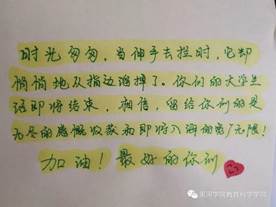 时光匆匆，当伸手去挡时，它却
悄悄地从指边溜掉了。你们的大学生
活即将结束，相信，留给你们的是
无尽的感慨收获和即将入海的宽广无限！
加油！最好的你们
黑河学院教育科学学院